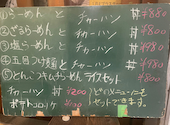 ①らーめん と チャーハン ¥880
②ざるらーめん と チャーハン ¥980
③塩らーめん と チャーハン ¥980
④五目つけ麺とチャーハン ¥980
⑤とんこつキムチらーめん ライスセット ¥800
チャーハン ¥200
ポテトコロッケ ¥100
どのメニューにも
セットできます。